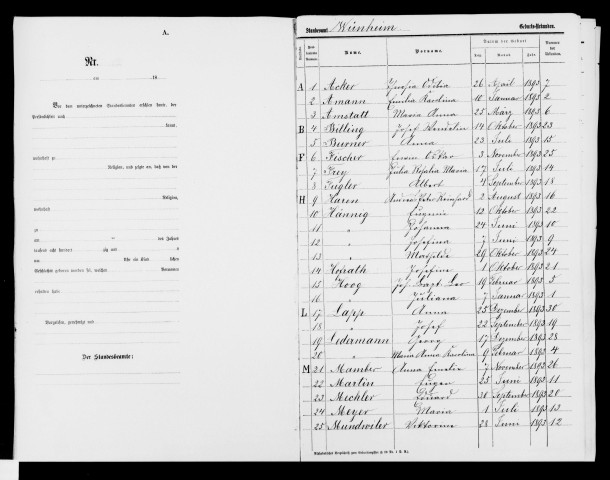 A.
Nr.
am 18
Vor dem unterzeichneten Standesbeamten erschien heute, der
Persönlichkeit nach
kannt,
wohnhaft zu
Religion, und zeigte an, daß von der
Religion,
wohnhaft
zu
am ten des Jahres
tausend acht hundert zig und
um Uhr ein Kind
Geschlechts geboren worden sei, welches Vornamen
erhalten habe
Vorgelesen, genehmigt und
Der Standesbeamte:
Standesamt Wünheim Geburts-Urkunden.
Name. Vorname. Datum der Geburt Nummer der Urkunden.
Tag Monat Jahr
A 1 Acker Odilia 26 April 1893 7
2 Amann Emilia Karolina 10 Januar 1893 2
3 Arnstatt Maria Anna 25 März 1893 6
B 4 Billing Josef 14 Oktober 1893 23
5 Burner Anna 23 Juli 1893 15
F 6 Fischer Viktor 3 November 1893 25
7 Frey Julia Rosalia Maria 17 Juli 1893 14
8 Albert 4 September 1893 18
H 9 Haren 2 August 1893 16
10 Hännig Eugenie 13 Oktober 1893 22
11 " Johanna 24 Juni 1893 10
12 " Josefina 7 Juni 1893 9
13 " Mathilde 29 Oktober 1893 24
14 Josefine 1 Oktober 1893 21
15 Hoog Jos. Bapt. Leo 19 Februar 1893 5
16 " Juliana 7 Januar 1893 1
L 17 Lapp Anna 25 Dezember 1893 30
18 " Josef 22 September 1893 19
19 Lidermann Georg 17 Dezember 1893 28
20 " Maria Anna Karolina 9 Februar 1893 4
M 21 Mamber Anna Emilie 7 November 1893 26
22 Martin Eugen 25 Juni 1893 11
23 Mechler Eduard 30 September 1893 20
24 Meyer Maria 1 Juli 1893 13
25 Mundweiler Viktorine 28 Juni 1893 12